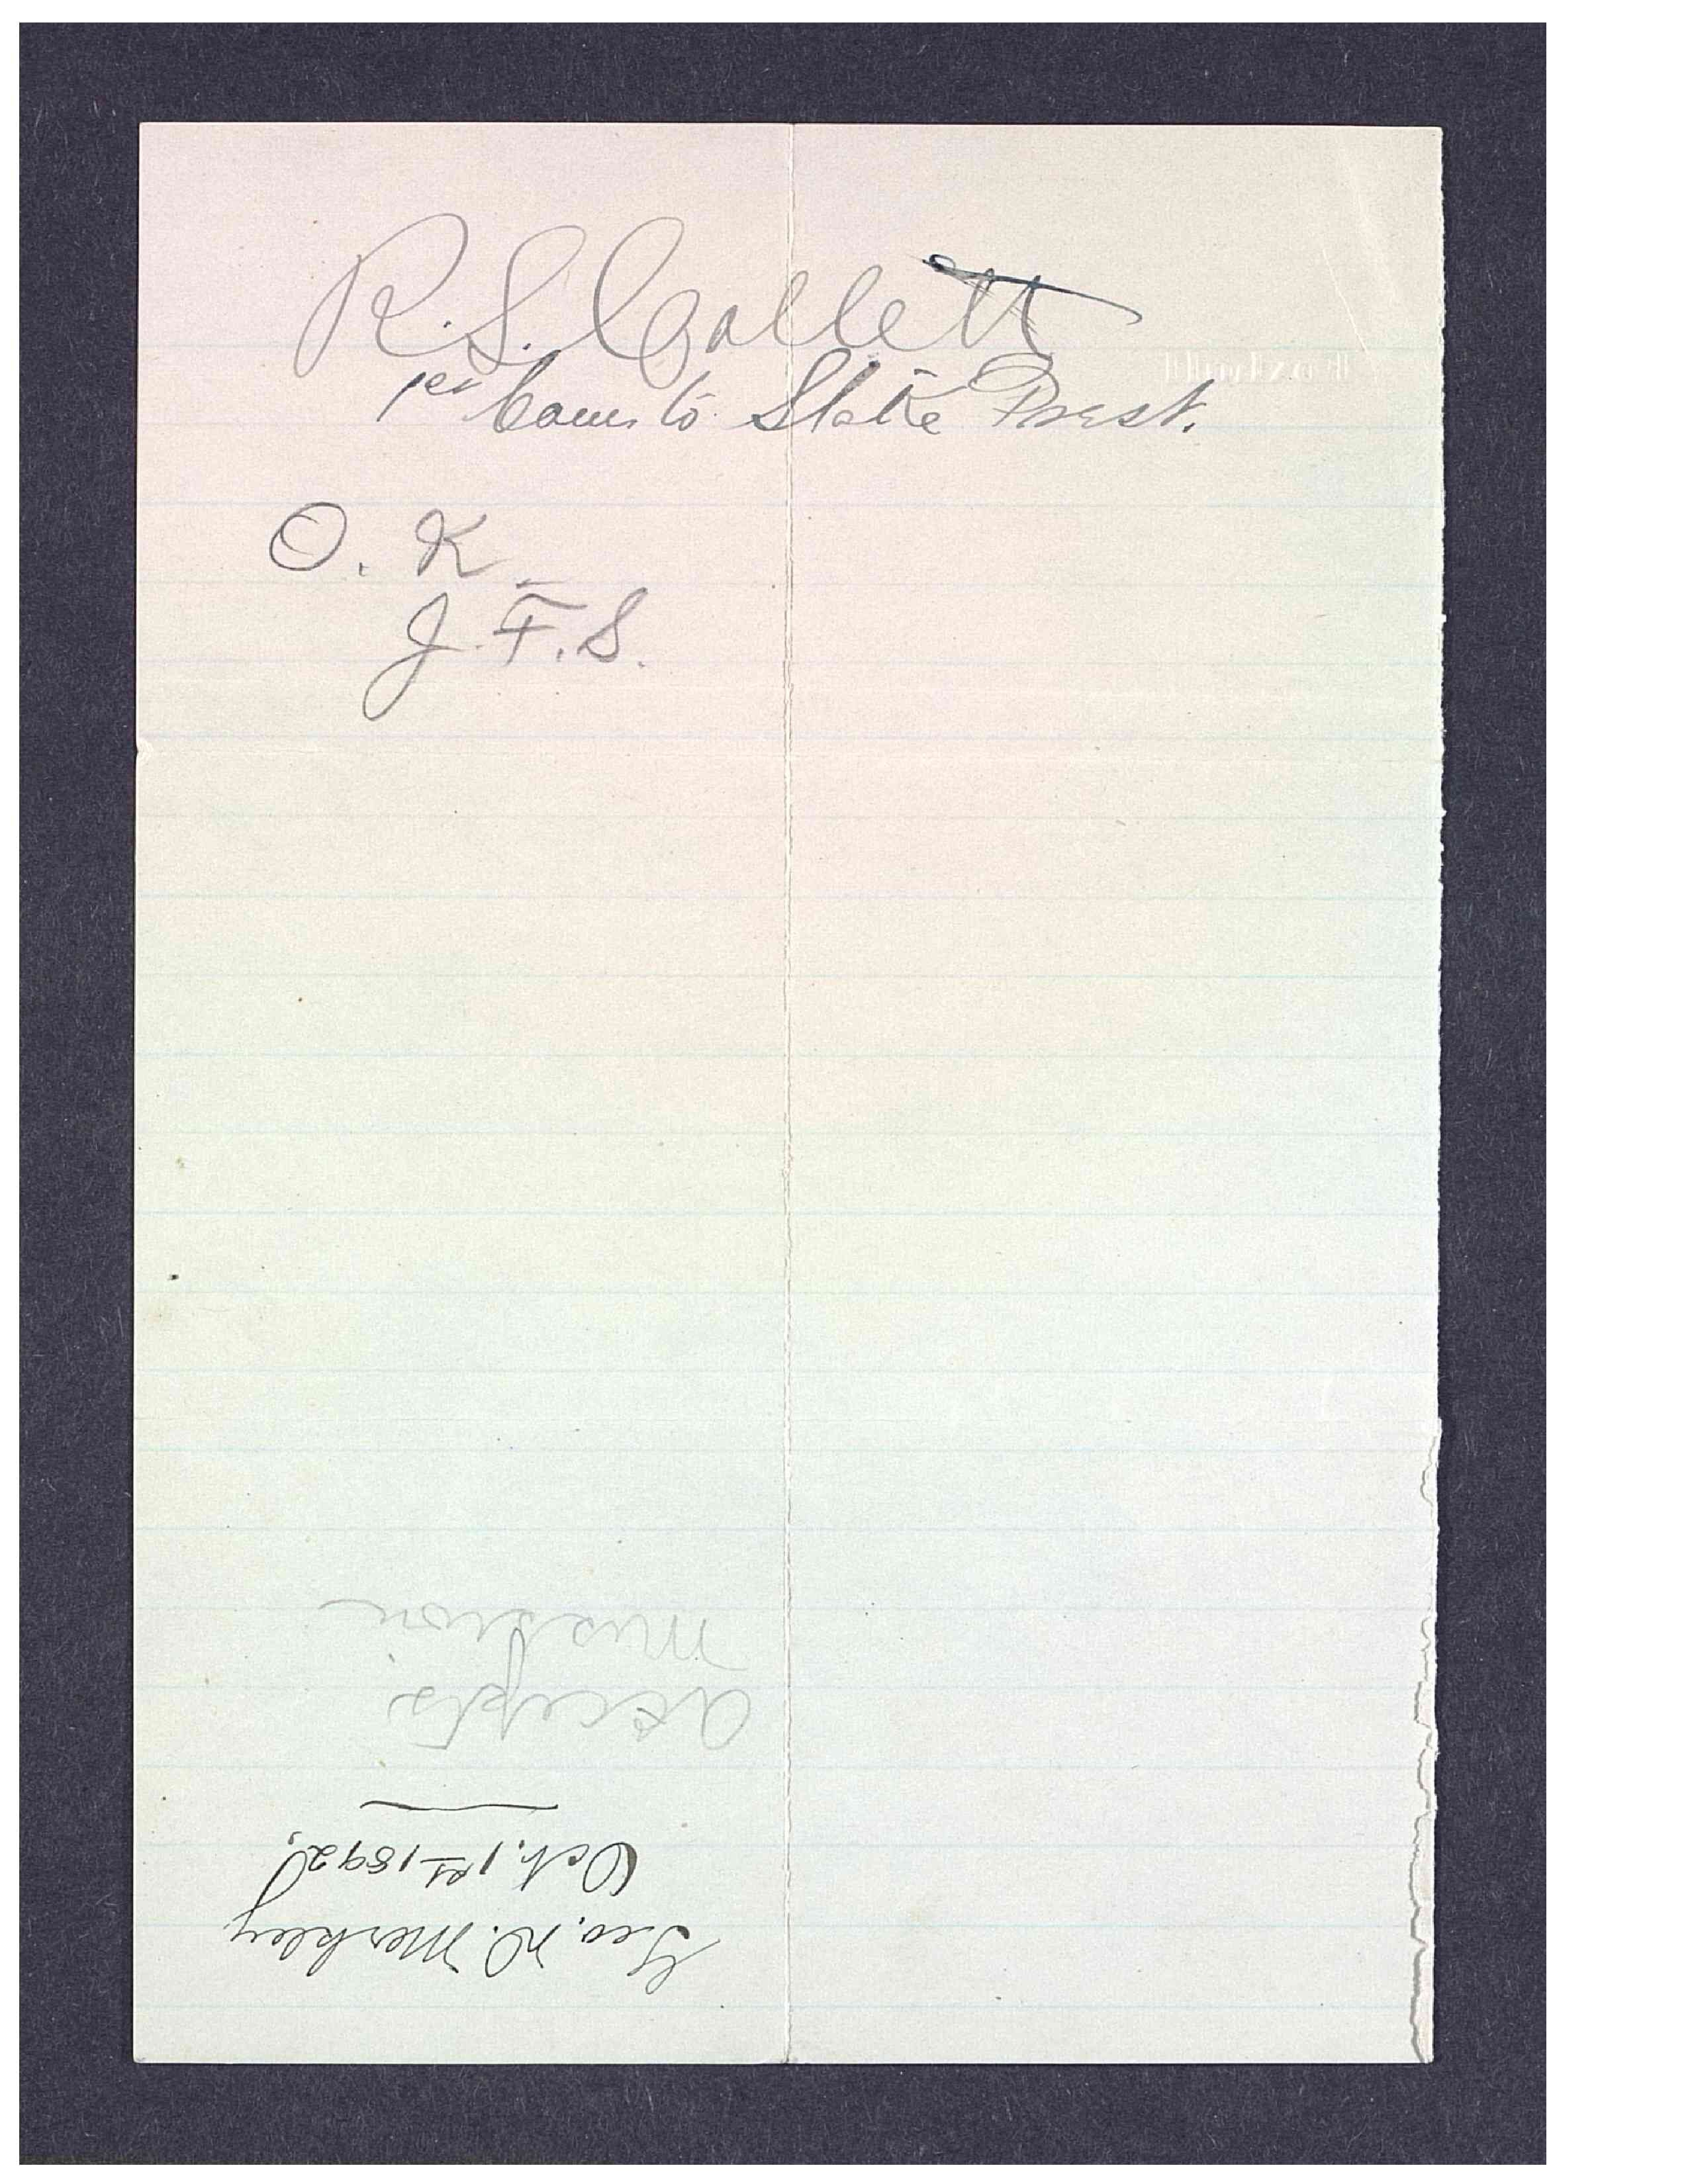 R. S. Collett
1st Couns to Stake Prest.
O. K.
J. F. S.
Geo. D. Merkley
Oct. 1st 1892.
accepts
mission